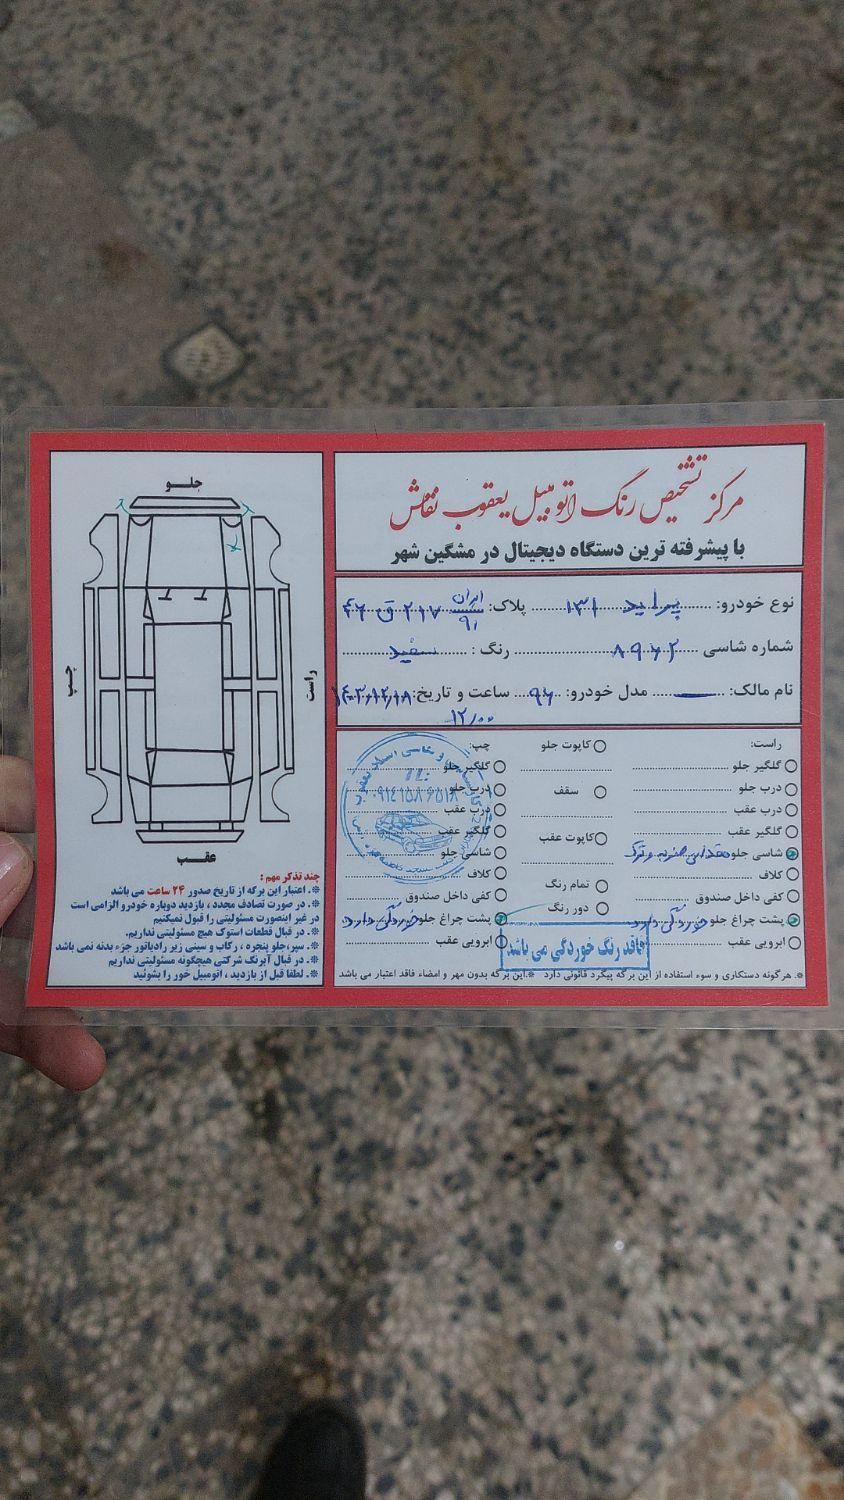 مرکز تشخیص رنگ اتومبیل یعقوب نقاش
با پیشرفته ترین دستگاه دیجیتال در مشگین شهر
نوع خودرو: پراید ۱۳۱ پلاک: ایران ۹۱ ۲۱۷ ق ۴۶
شماره شاسی ۸۹۶۲ رنگ : سفید
نام مالک: مدل خودرو: ۹۶ ساعت و تاریخ: ۱۴۰۳/۱۲/۱۸
۱۲/۰۰
راست:
گلگیر جلو
درب جلو
درب عقب
گلگیر عقب
شاسی جلو مقداری ضربه و ترک
کلاف
کفی داخل صندوق
پشت چراغ جلو خوردگی دارد
ابرویی عقب
کاپوت جلو
سقف
کاپوت عقب
تمام رنگ
دور رنگ
چپ:
گلگیر جلو
درب جلو
درب عقب
گلگیر عقب
شاسی جلو
کلاف
کفی داخل صندوق
پشت چراغ جلو خوردگی دارد
ابرویی عقب
فاقد رنگ خوردگی می باشد
※. هرگونه دستکاری و سوء استفاده از این برگه پیگرد قانونی دارد ※.این برگه بدون مهر و امضاء فاقد اعتبار می باشد
جلـو
چپ
راست
عقـب
چند تذکر مهم :
※. اعتبار این برگه از تاریخ صدور ۲۴ ساعت می باشد
※. در صورت تصادف مجدد ، بازدید دوباره خودرو الزامی است
در غیر اینصورت مسئولیتی را قبول نمیکنیم
※. در قبال قطعات استوک هیچ مسئولیتی نداریم.
※. سپر،جلو پنجره ، رکاب و سینی زیر رادیاتور جزء بدنه نمی باشد
※. در قبال آبرنگ شرکتی هیچگونه مسئولیتی نداریم
※. لطفا قبل از بازدید ، اتومبیل خور را بشوئید